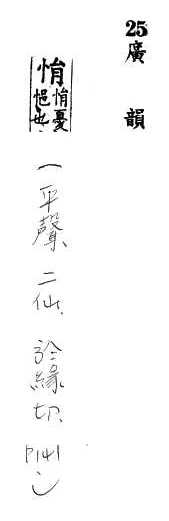 25廣韻
悁悁憂悒也
(平聲、二仙、於緣切、P141)